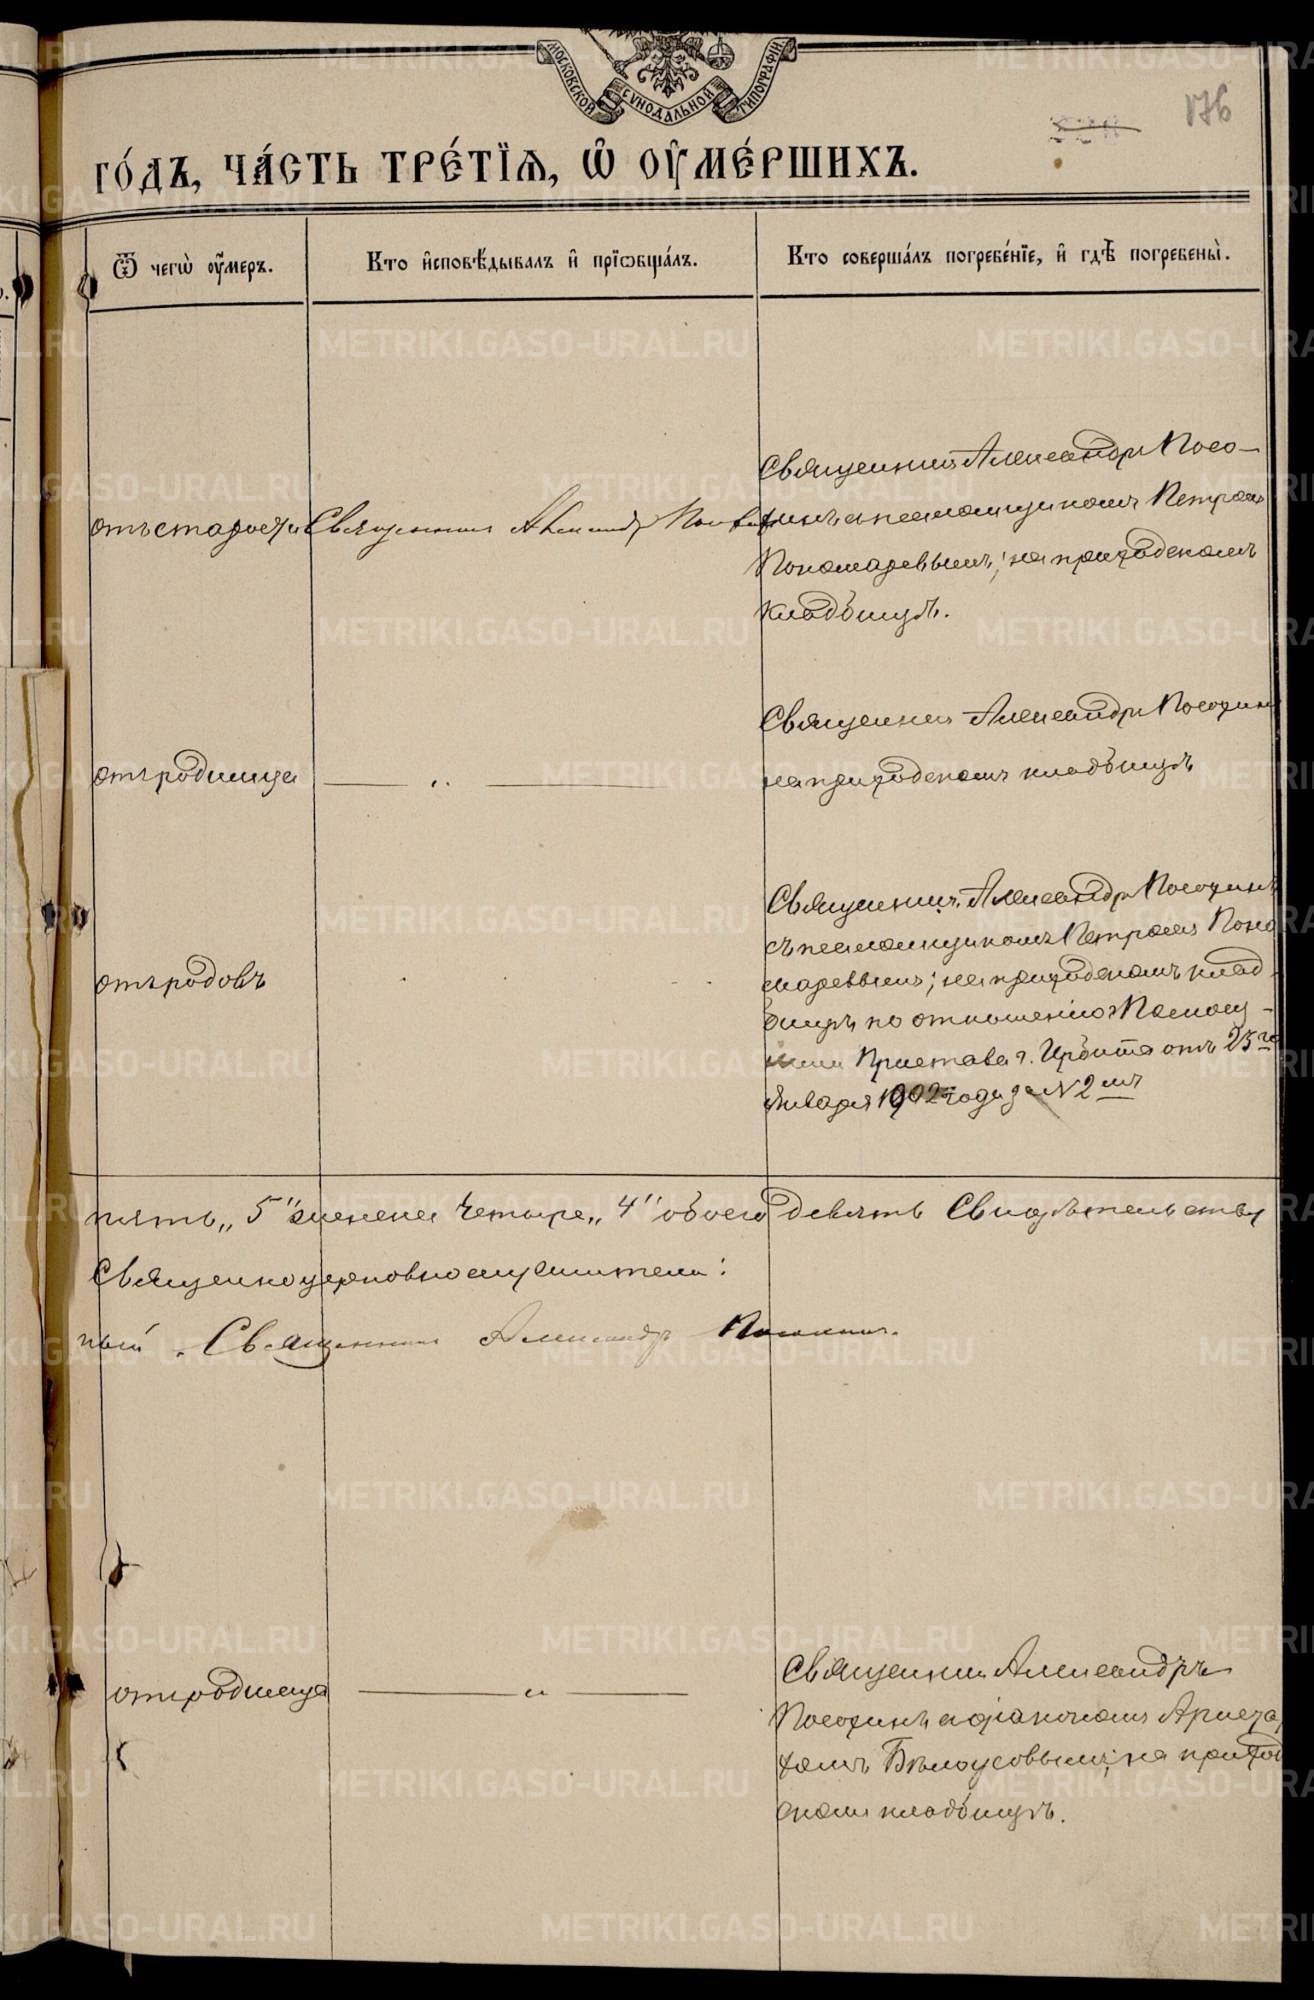 МОСКОВСКОЙ СѴНОДАЛЬНОЙ ТИПОГРАФІИ
176
ГО́ДЪ, ЧА́СТЬ ТРЕ́ТІЯ, Ѽ ОУ҆МЕ́РШИХЪ.
Ѿ чегѡ̀ оу҆́меръ.
Кто и҆сповѣ́дывалъ и҆ прїѡбща́лъ.
Кто соверша́лъ погребе́нїе, и҆ гдѣ̀ погребены̀.
отъ старости
Священникъ Александръ Посохинъ
Священникъ Александръ Посо-
хинъ с псаломщикомъ Петромъ
Пономаревымъ; на приходскомъ
кладбищѣ.
отъ родимца
— „ —
Священникъ Александръ Посохинъ
на приходскомъ кладбищѣ
отъ родовъ
Священникъ Александръ Посохинъ
съ псаломщикомъ Петромъ Поно
маревымъ; на приходскомъ клад-
бищѣ по отношенію Помощ-
ника Пристава г. Ирбита отъ 25го
Января 1902 года за №2мъ
пять „5" женска четыре „4" обоего девять Свидѣтельству
Священноцерковнослужители:
ный Священникъ Александръ Посохинъ.
отъ родимца
— „ —
Священникъ Александръ
Посохинъ с діакономъ Ариста
хомъ Бѣлоусовымъ; на приход
скомъ кладбищѣ.
METRIKI.GASO-URAL.RU